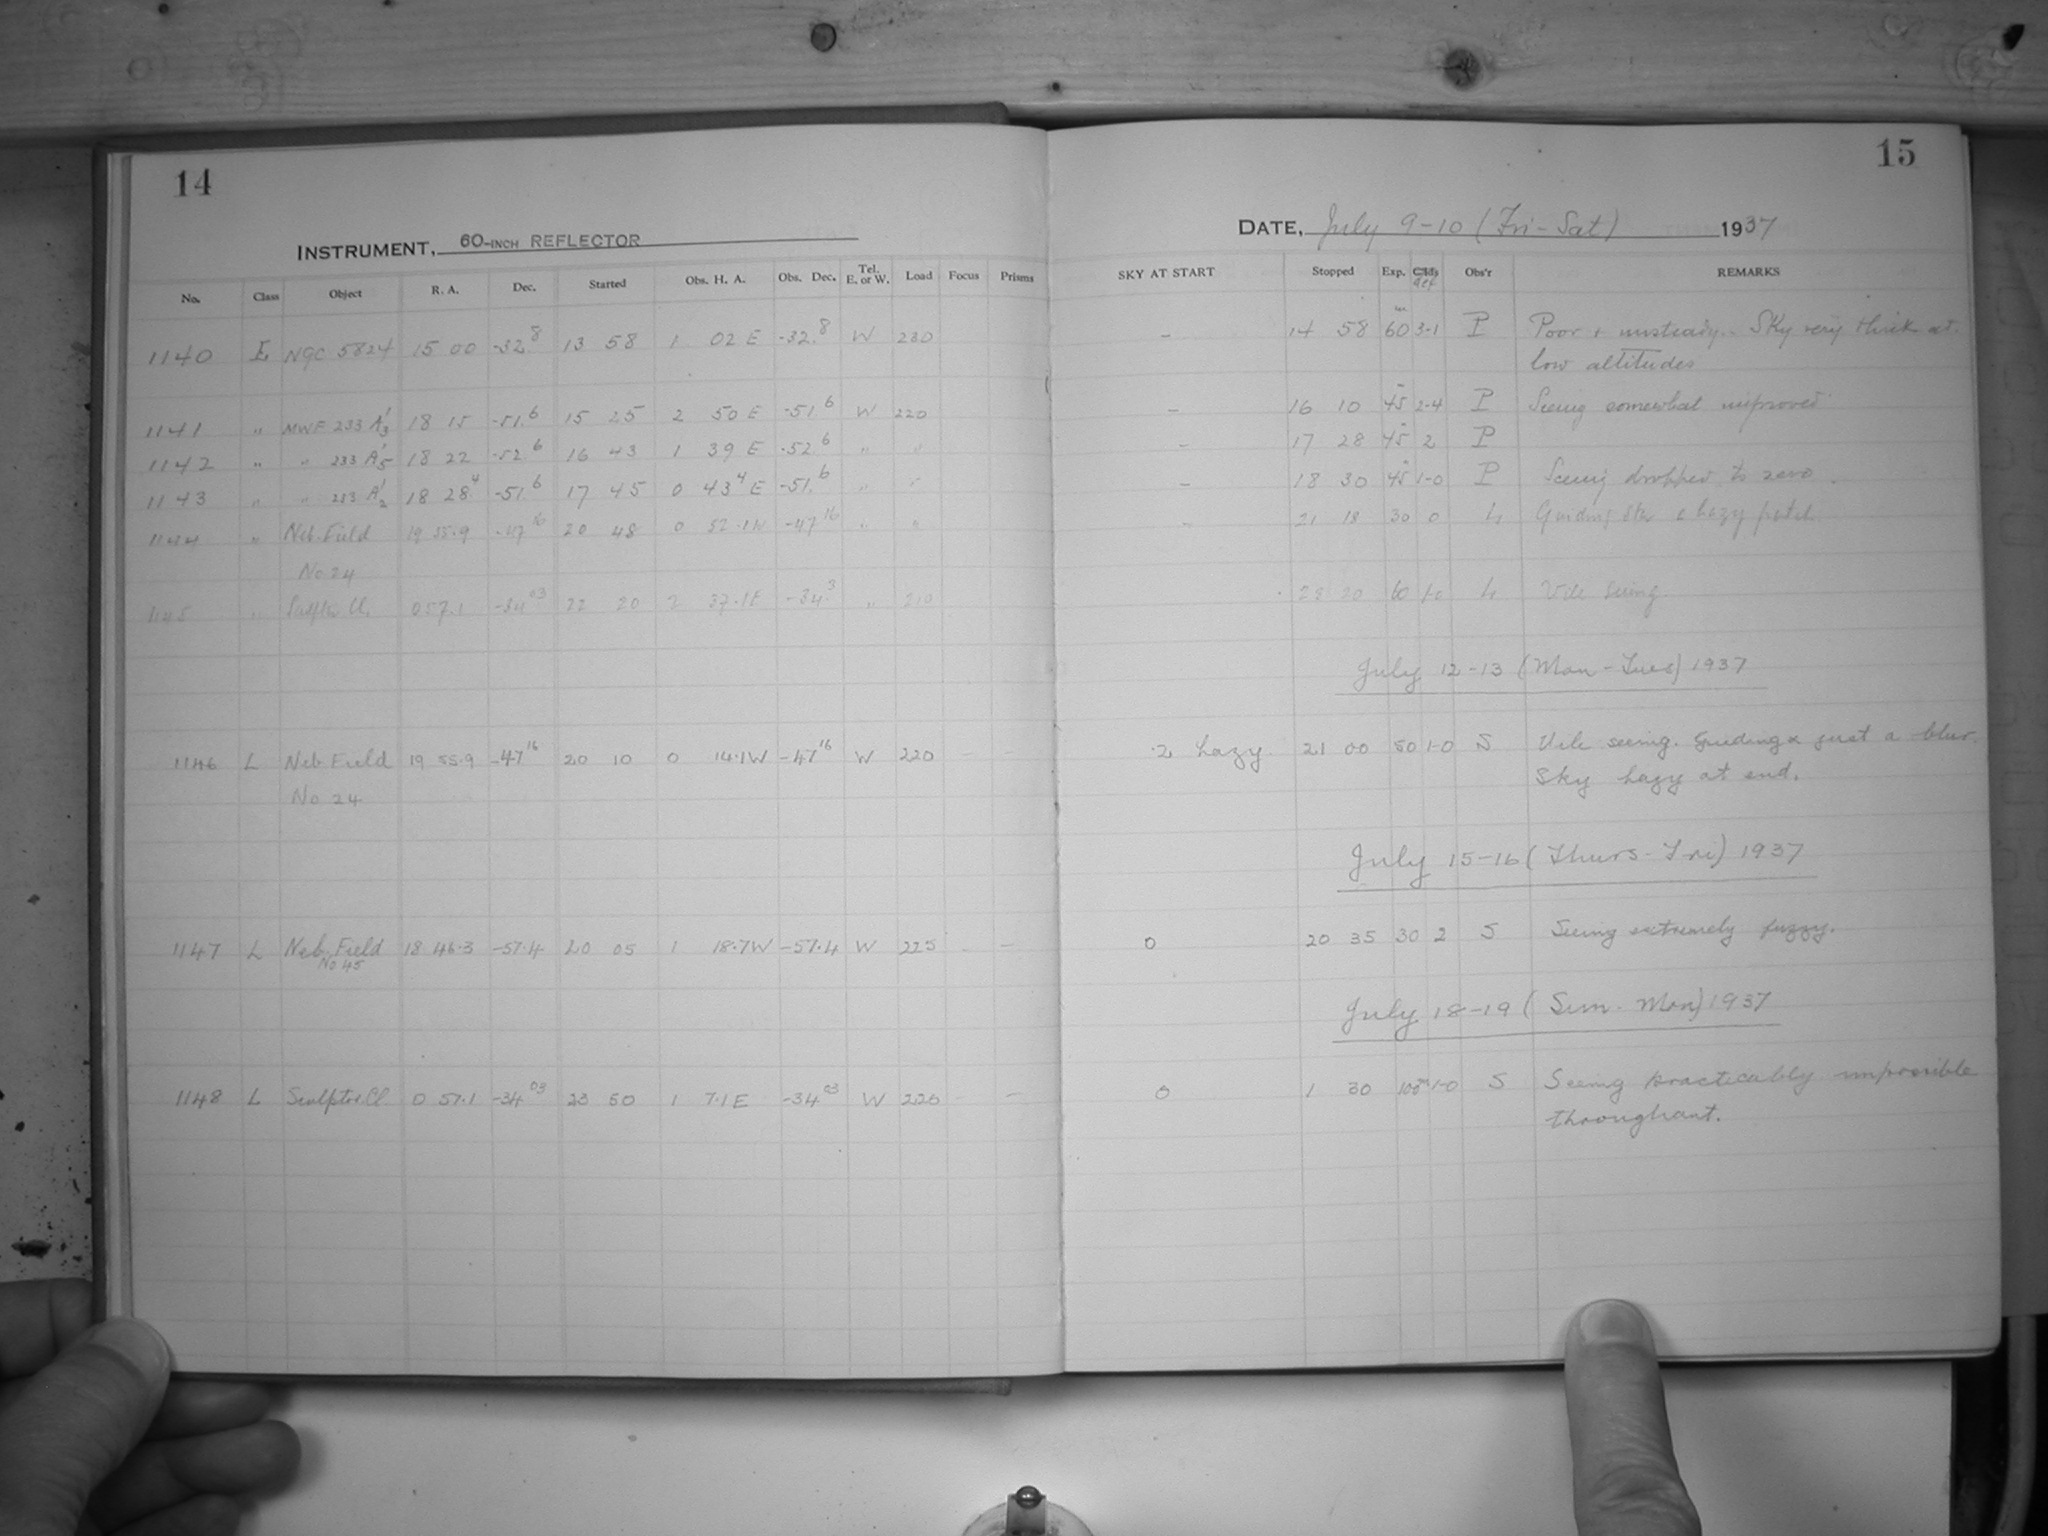 14
INSTRUMENT, 60-INCH REFLECTOR
No. Class Object R. A. Dec. Started Obs. H. A. Obs. Dec. Tel. E. or W. Load Focus Prisms
1140 L NGC 5824 15 00 -32.8 13 58 1 02 E -32.8 W 230
1141 " MWF 233 A'3 18 15 -51.6 15 25 2 50 E -51.6 W 220
1142 " " 233 A'5 18 22 -52.6 16 43 1 39 E -52.6 " "
1143 " " 233 A'2 18 28.4 -51.6 17 45 0 43.4 E -51.6 " "
1144 " Neb. Field 19 55.9 -47 16 20 48 0 52.1W -47 16 " "
No 24
1145 " Sculptor Cl. 0 57.1 -34 03 22 20 2 37.1E -34.3 " 210
1146 L Neb Field 19 55.9 -47 16 20 10 0 14.1W -47 16 W 220 - -
No 24
1147 L Neb. Field 18 46.3 -57.4 20 05 1 18.7W -57.4 W 225 - -
No 45
1148 L Sculptor Cl 0 57.1 -34 03 23 50 1 7.1E -34 03 W 220 - -
15
DATE, July 9-10 (Fri-Sat) 1937
SKY AT START Stopped Exp. Obs'r REMARKS
- 14 58 60 3-1 P Poor & unsteady - Sky very thick at
low altitudes
- 16 10 45 2-4 P Seeing somewhat improved
- 17 28 45 2 P
- 18 30 45 1-0 P Seeing dropped to zero.
- 21 18 30 0 L Guiding star a hazy patch
23 20 60 1-0 L Vile seeing.
July 12-13 (Mon-Tues) 1937
2 hazy 21 00 50 1-0 S Vile seeing. Guiding * just a blur.
Sky hazy at end.
July 15-16 (Thurs-Fri) 1937
0 20 35 30 2 S Seeing extremely fuzzy.
July 18-19 (Sun-Mon) 1937
0 1 30 100m 1-0 S Seeing practicably impossible
throughout.